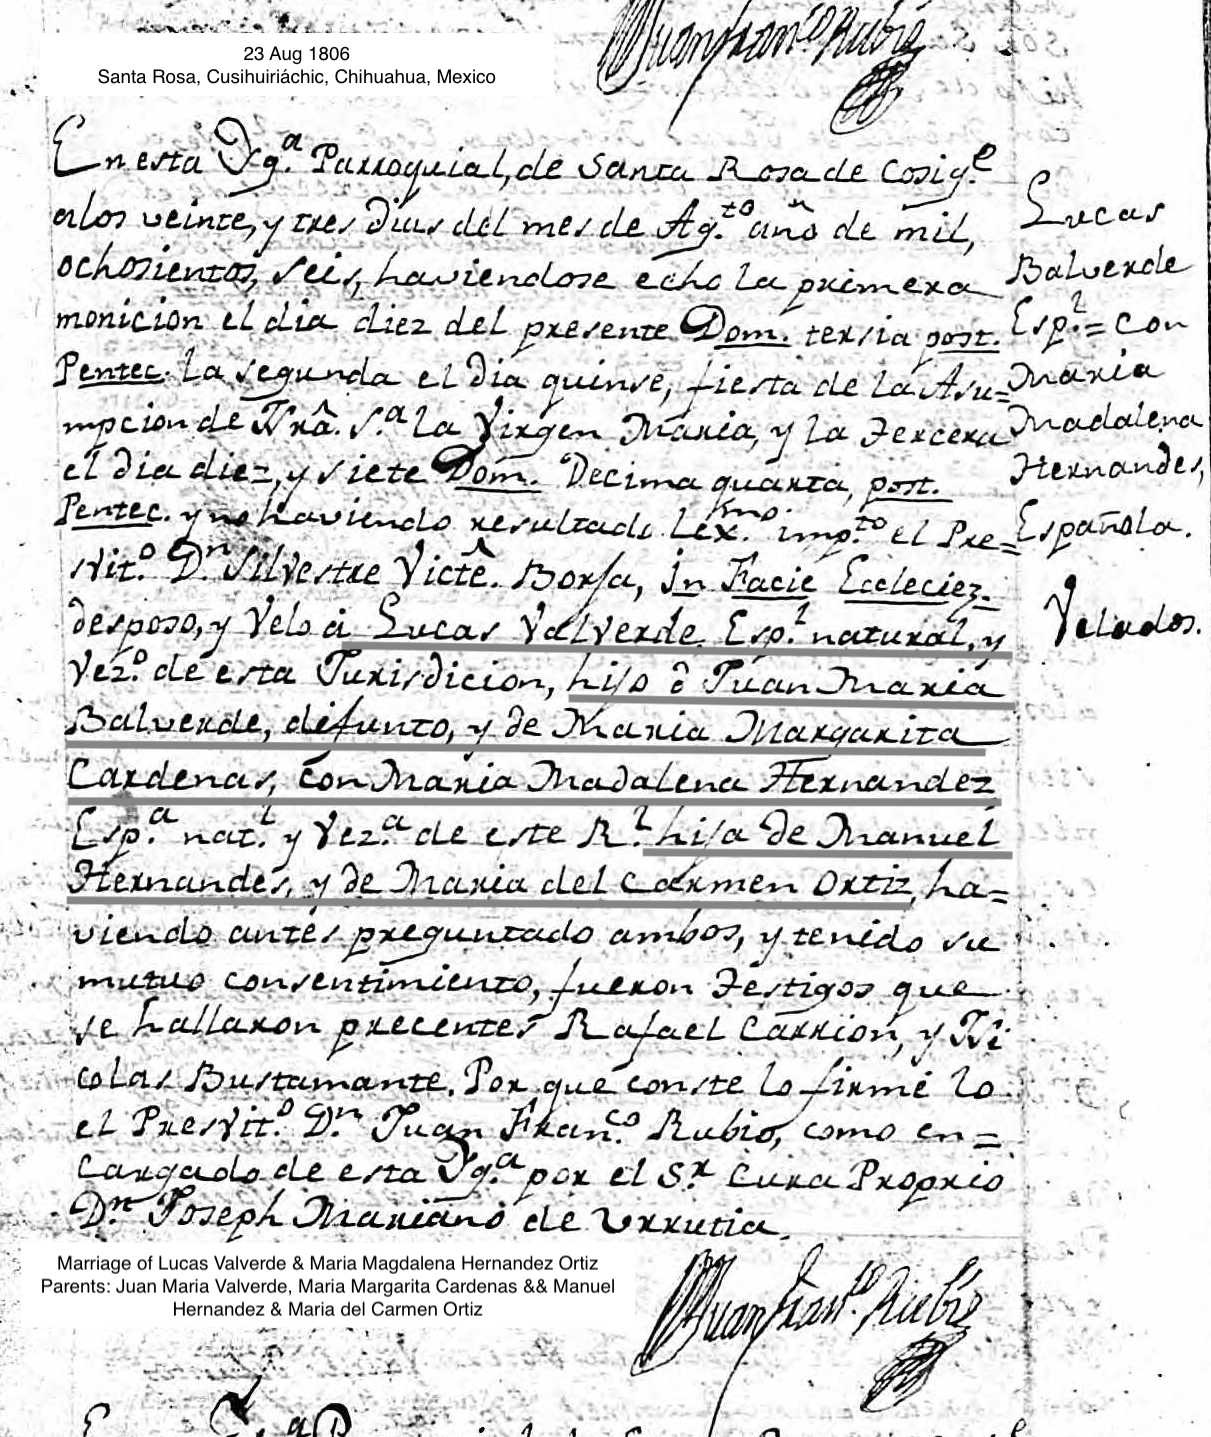 Juan Fran.co Rubio
23 Aug 1806
Santa Rosa, Cusihuiriáchic, Chihuahua, Mexico
En esta Yg.a Parroquial, de Santa Rosa de Cosig.e
a los veinte, y tres dias del mes de Ag.to año de mil,
ochosientos, seis, haviendose echo la primera
monicion el dia diez del presente Dom. tersia post.
Pentec. la segunda el dia quinse, fiesta de la Asu=
mpcion de Nrâ. S.a la Virgen Maria, y la Tercera
el dia diez, y siete Dom. Decima quarta, post.
Pentec. y no haviendo resultado Lex.mo imp.to el Pre=
svit.o D.n Silvestre Victê. Borja, In Facie Eccleciez.
desposo, y Velo á Lucas Valverde Esp.l natural, y
Vez.o de esta Jurisdicion, hijo d Juan Maria
Balverde, difunto, y de Maria Margarita
Cardenas, con Maria Madalena Hernandez
Esp.a nat.l y Vez.a de este R.l hija de Manuel
Hernandes, y de Maria del Carmen Ortiz, ha=
viendo antes preguntado ambos, y tenido su
mutuo consentimiento, fueron Testigos que
se hallaron precentes Rafael Carrion, y Ni
colas Bustamante. Por que conste lo firmé lo
el Presvit.o D.n Juan Fran.co Rubio, como en=
cargado de esta Yg.a por el S.r Cura Proprio
D.n Joseph Mariano de Urrutia.
Lucas
Balverde
Esp.l = con
Maria
Madalena
Hernandes,
Española.
Velados.
Marriage of Lucas Valverde & Maria Magdalena Hernandez Ortiz
Parents: Juan Maria Valverde, Maria Margarita Cardenas && Manuel
Hernandez & Maria del Carmen Ortiz
Juan Fran.co Rubio